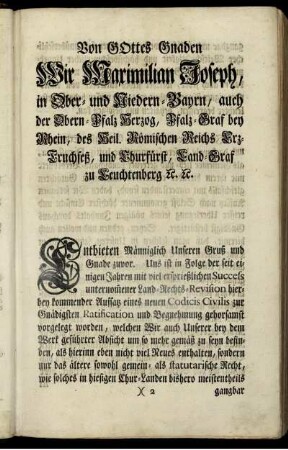 Von GOttes Gnaden
Wir Maximilian Joseph,
in Ober- und Niedern-Bayrn, auch
der Obern-Pfalz Herzog, Pfalz-Graf bey
Rhein, des Heil. Römischen Reichs Erz-
Truchseß, und Churfürst, Land-Graf
zu Leuchtenberg ꝛc. ꝛc.
Entbieten Männiglich Unseren Gruß und
Gnade zuvor. Uns ist in Folge der seit ei-
nigen Jahren mit viel ersprießlichen Success
unternom̃ener Land-Rechts-Revision hier-
bey kommender Auffatz eines neuen Codicis Civilis zur
Gnädigsten Ratification und Begnehmung gehorsamst
vorgelegt worden, welchen Wir auch Unserer bey dem
Werk geführter Absicht um so mehr gemäß zu seyn befin-
den, als hierinn eben nicht viel Neues enthalten, sondern
nur das ältere sowohl gemein- als statutarische Recht,
wie solches in hiesigen Chur-Landen bishero meistentheils
X 2 gangbar